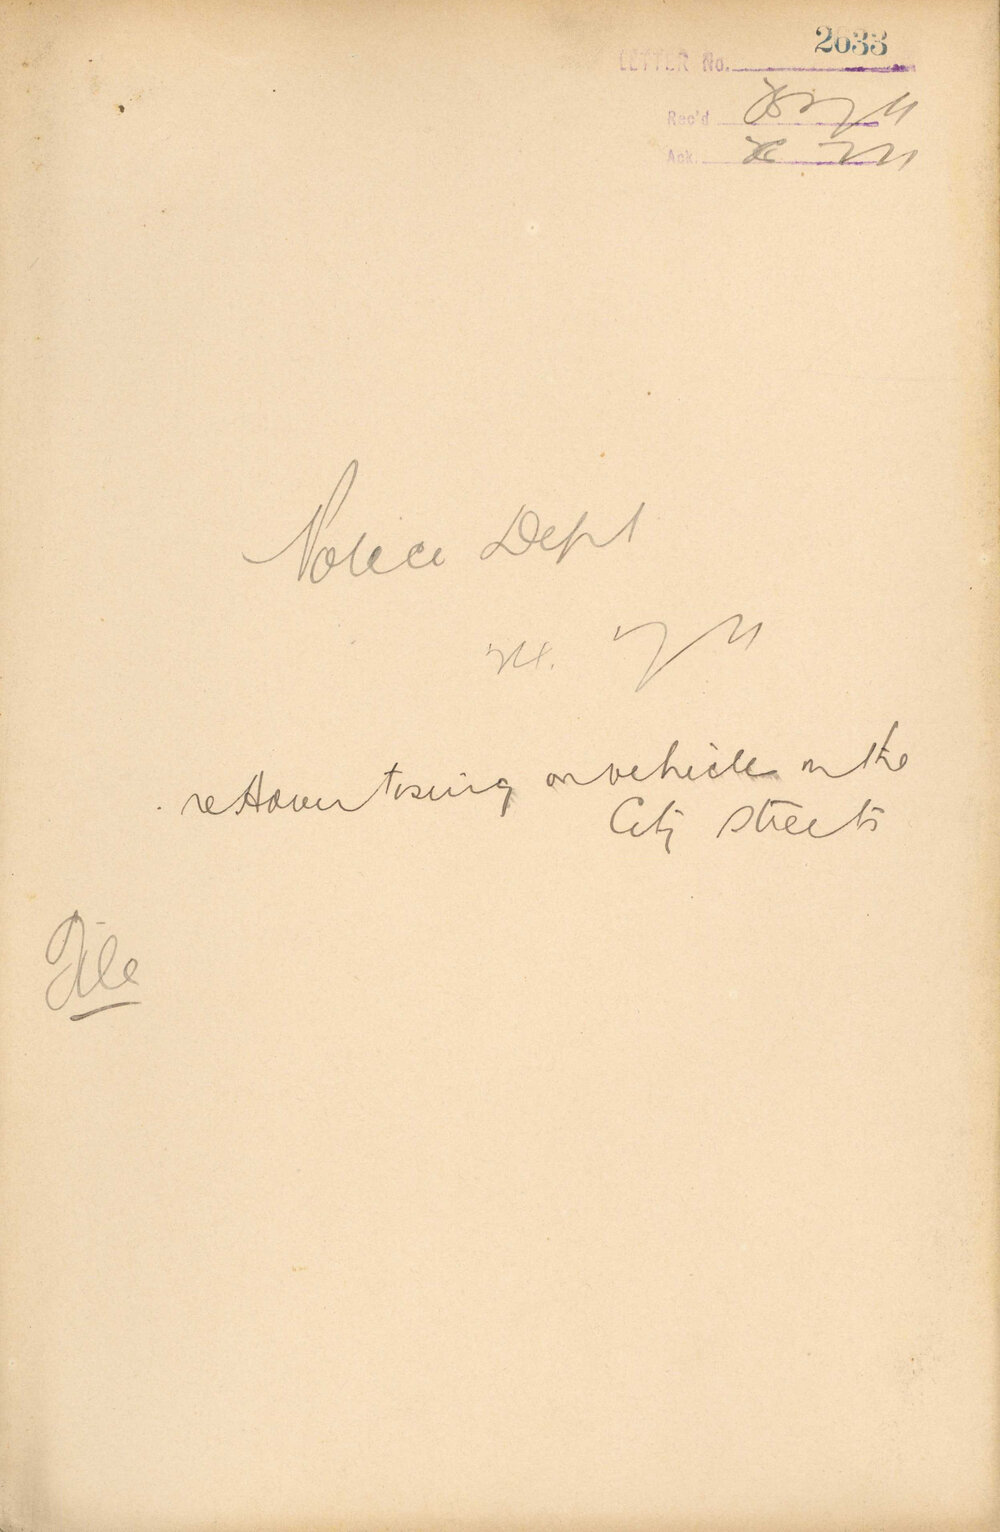 2033
LETTER No.
Rec'd
Ack.
Police Dept
re Advertising on vehicles on the
City Streets
File